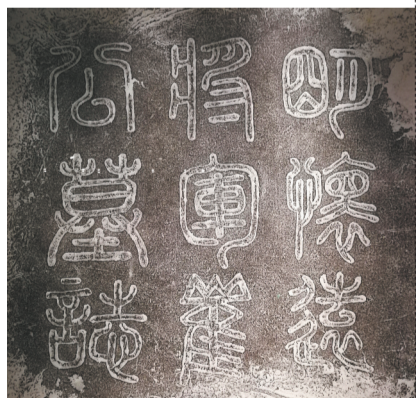 明懷遠
將軍
公墓誌